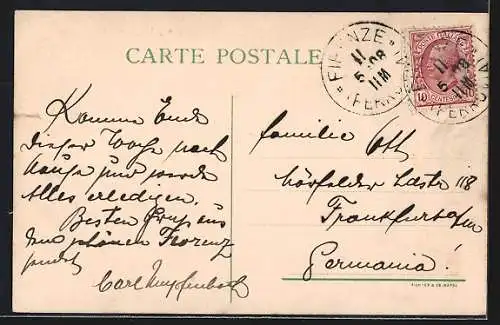 CARTE POSTALE
FIRENZE
(FERROVIA)
11
5 08
11M
POSTE ITALIANE
10
Komme Ende
dieser Woche nach
Hause und werde
Alles erledigen.
Besten Gruss aus
dem schönen Florenz
sendet
Carl
Familie Ott
Landstr 118
Frankfurt a/m
Germania!